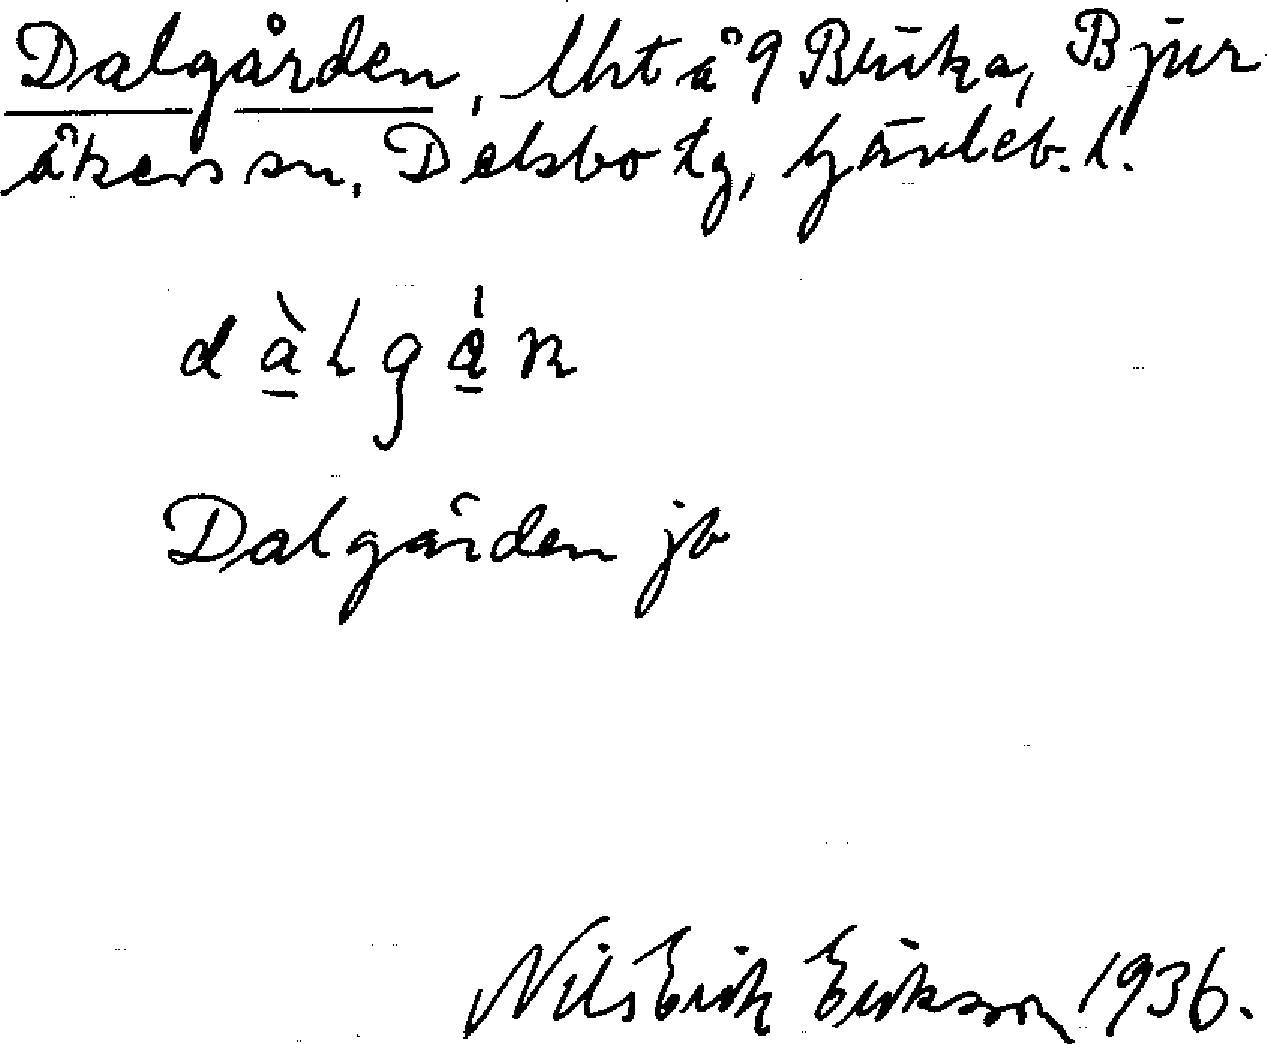 Dalgården, Urt å 9 Blæka, Bjur
åkers sn, Delsbo tg, Gävleb. l.
dàlgá̀n
Dalgården jb
Nils Erik Eriksson 1936.